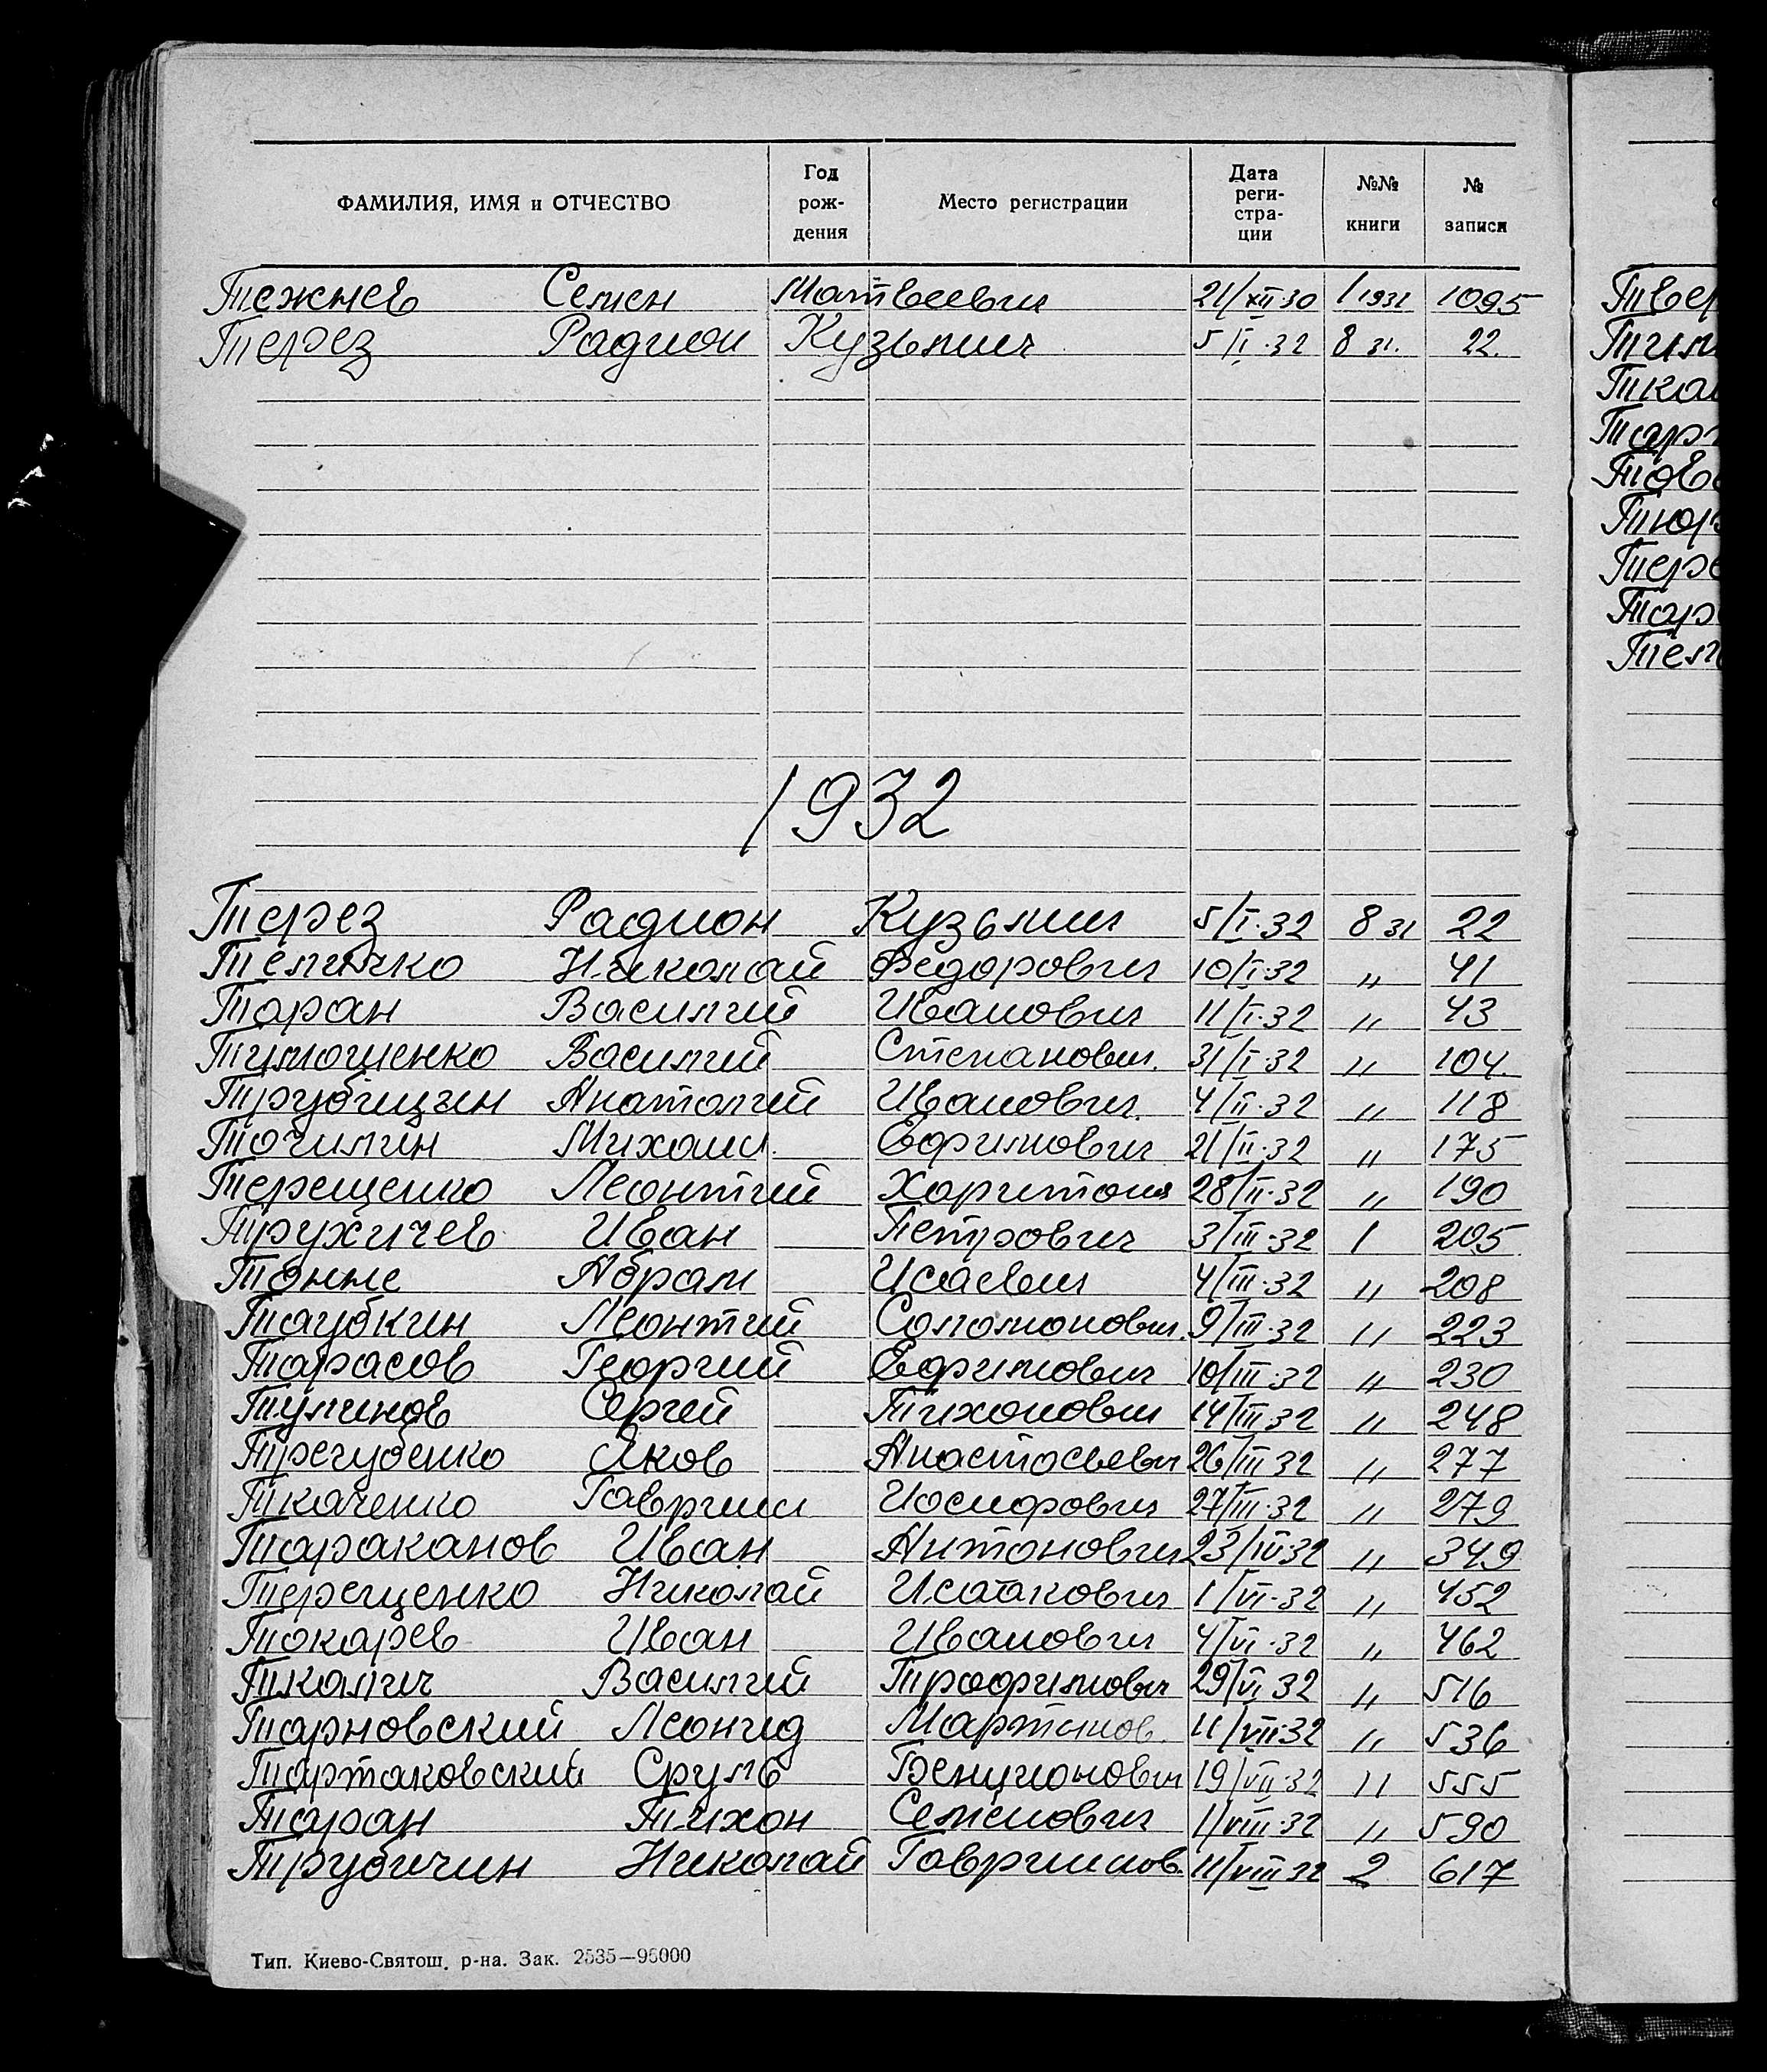 ФАМИЛИЯ, ИМЯ и ОТЧЕСТВО Год рождения Место регистрации Дата регистрации №№ книги № записи
Тежнев Семен Матвеевич 21/XII 30 1 1931 1095
Терез Радион Кузьмич 5/I·32 8 31. 22.
1932
Терез Радион Кузьмич 5/I·32 8 31 22
Теличко Николай Федорович 10/I·32 " 41
Таран Василий Иванович 11/I·32 " 43
Тимошенко Василий Степанович. 31/I·32 " 104.
Трубицин Анатолий Иванович. 4/II·32 " 118
Точилин Михаил. Ефимович 21/II·32 " 175
Терещенко Леонтий Харитон 28/II·32 " 190
Трухичев Иван Петрович 3/III·32 1 205
Тонне Абрам Исаевич 4/III·32 " 208
Таубкин Леонтий Соломонович. 9/III·32 " 223
Тарасов Георгий Ефимович 10/III·32 " 230
Тулинов Сергей Тихонович 14/III 32 " 248
Трегубенко Яков Анастасьевич 26/III 32 " 277
Ткаченко Гавриил Иосифович 27/III·32 " 279
Тараканов Иван Антонович 23/IV·32 " 349
Терещенко Николай Исаакович 1/VI·32 " 452
Токарев Иван Иванович 4/VI·32 " 462
Ткалич Василий Трофимович 29/VI 32 " 516
Тарновский Леонид Мартинов. 11/VII·32 " 536
Тартаковский Сруль Бенционович 19/VII·32 " 555
Таран Тихон Семенович 1/VIII·32 " 590
Трубичин Николай Гавриилов. 11/VIII 32 2 617
Тип. Киево-Святош. р-на. Зак. 2535—95000